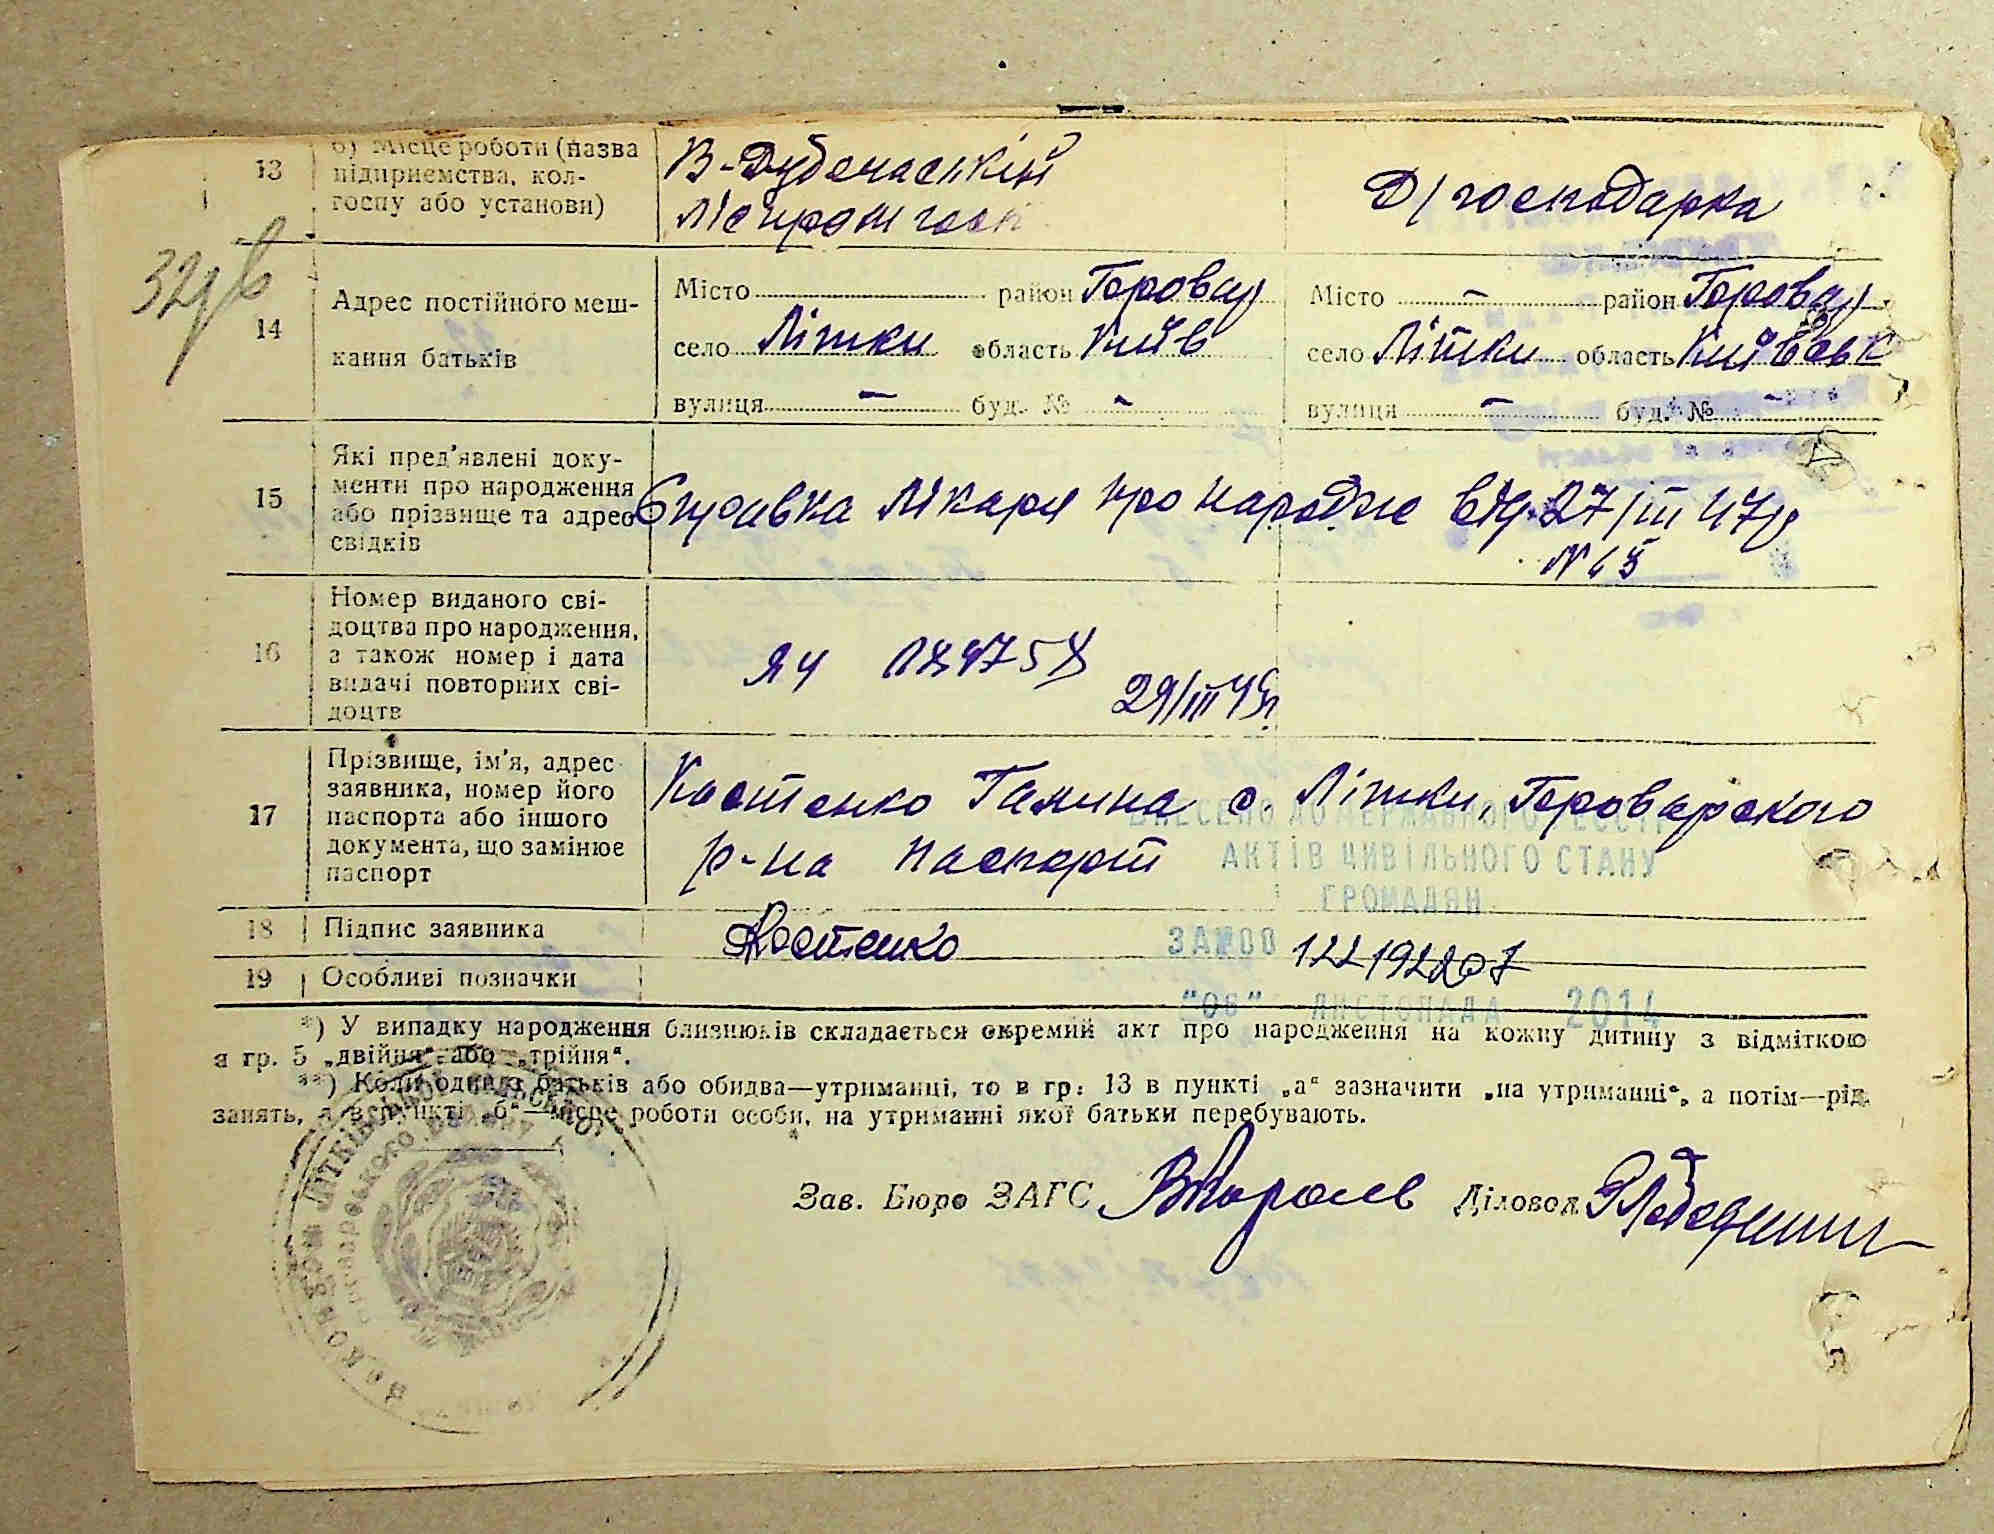 13
б) Місце роботи (назва
підприємства, кол-
госпу або установи)
В-Дубечаський
Ліспромгосп
Д/господарка
32
14
Адрес постійного меш-
кання батьків
Місто район Боровар
село Літки область Київ
вулиця - буд. № -
Місто - район Боровар
село Літки область Київськ
вулиця - буд. № -
15
Які пред'явлені доку-
менти про народження
або прізвище та адрес
свідків
Справка лікаря про народже від 27/III 47р
N
16
Номер виданого сві-
доцтва про народження,
а також номер і дата
видачі повторних сві-
доцтв
ЯЧ
29/III
17
Прізвище, ім'я, адрес
заявника, номер його
паспорта або іншого
документа, що замінює
паспорт
Костенко Галина с. Літки, Броварского
р-на паспорт
ВНЕСЕНО ДО ДЕРЖАВНОГО РЕЄСТРУ
АКТІВ ЦИВІЛЬНОГО СТАНУ
ГРОМАДЯН
18
Підпис заявника
Костенко
ЗА №00
19
Особливі позначки
"06" ЛИСТОПАДА 2014
*) У випадку народження близнюків складається окремий акт про народження на кожну дитину з відміткою
в гр. 5 „двійня" або „трійня".
**) Коли один з батьків або обидва—утриманці, то в гр. 13 в пункті „а" зазначити „на утриманні", а потім—рід
занять, а в пункті „б"—місце роботи особи, на утриманні якої батьки перебувають.
Зав. Бюро ЗАГС
Діловод